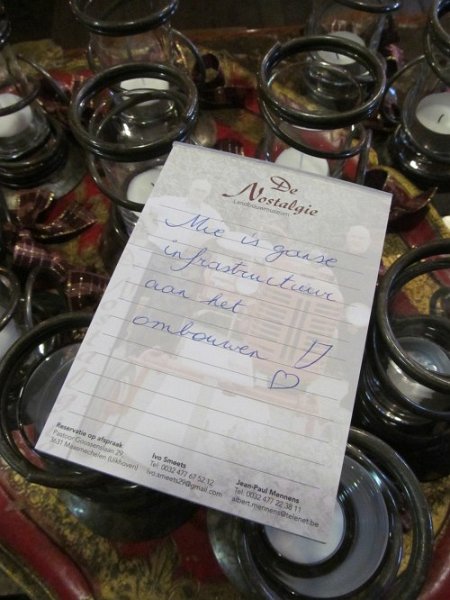 De
Nostalgie
Landbouwmuseum
Mie is ganse
infrastructuur
aan het
ombouwen !
Reservatie op afspraak
Pastoor Goossenslaan 29,
3631 Maasmechelen (Uikhoven)
Ivo Smeets
Tel. 0032 477 67 52 12
ivo.smeets29@gmail.com
Jean-Paul Mennens
Tel. 0032 477 22 38 11
albert.mennens@telenet.be